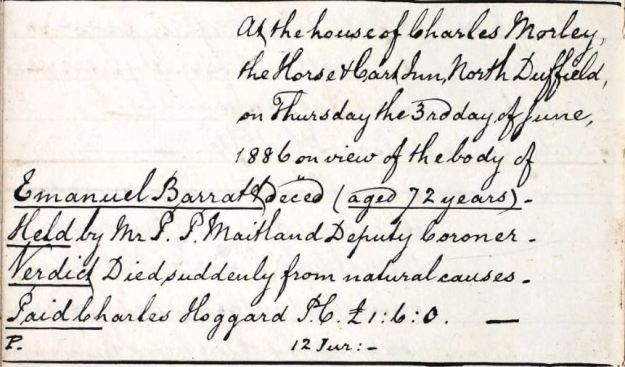 At the house of Charles Morley,
the Horse & Cart Inn, North Duffield,
on Thursday the 3rd day of June,
1886 on view of the body of
Emanuel Barratt deced (aged 72 years)-
Held by Mr P. P. Maitland Deputy Coroner -
Verdict Died suddenly from natural causes -
Paid Charles Hoggard P.C. £1:6:0. —
P. 12 Jur:-